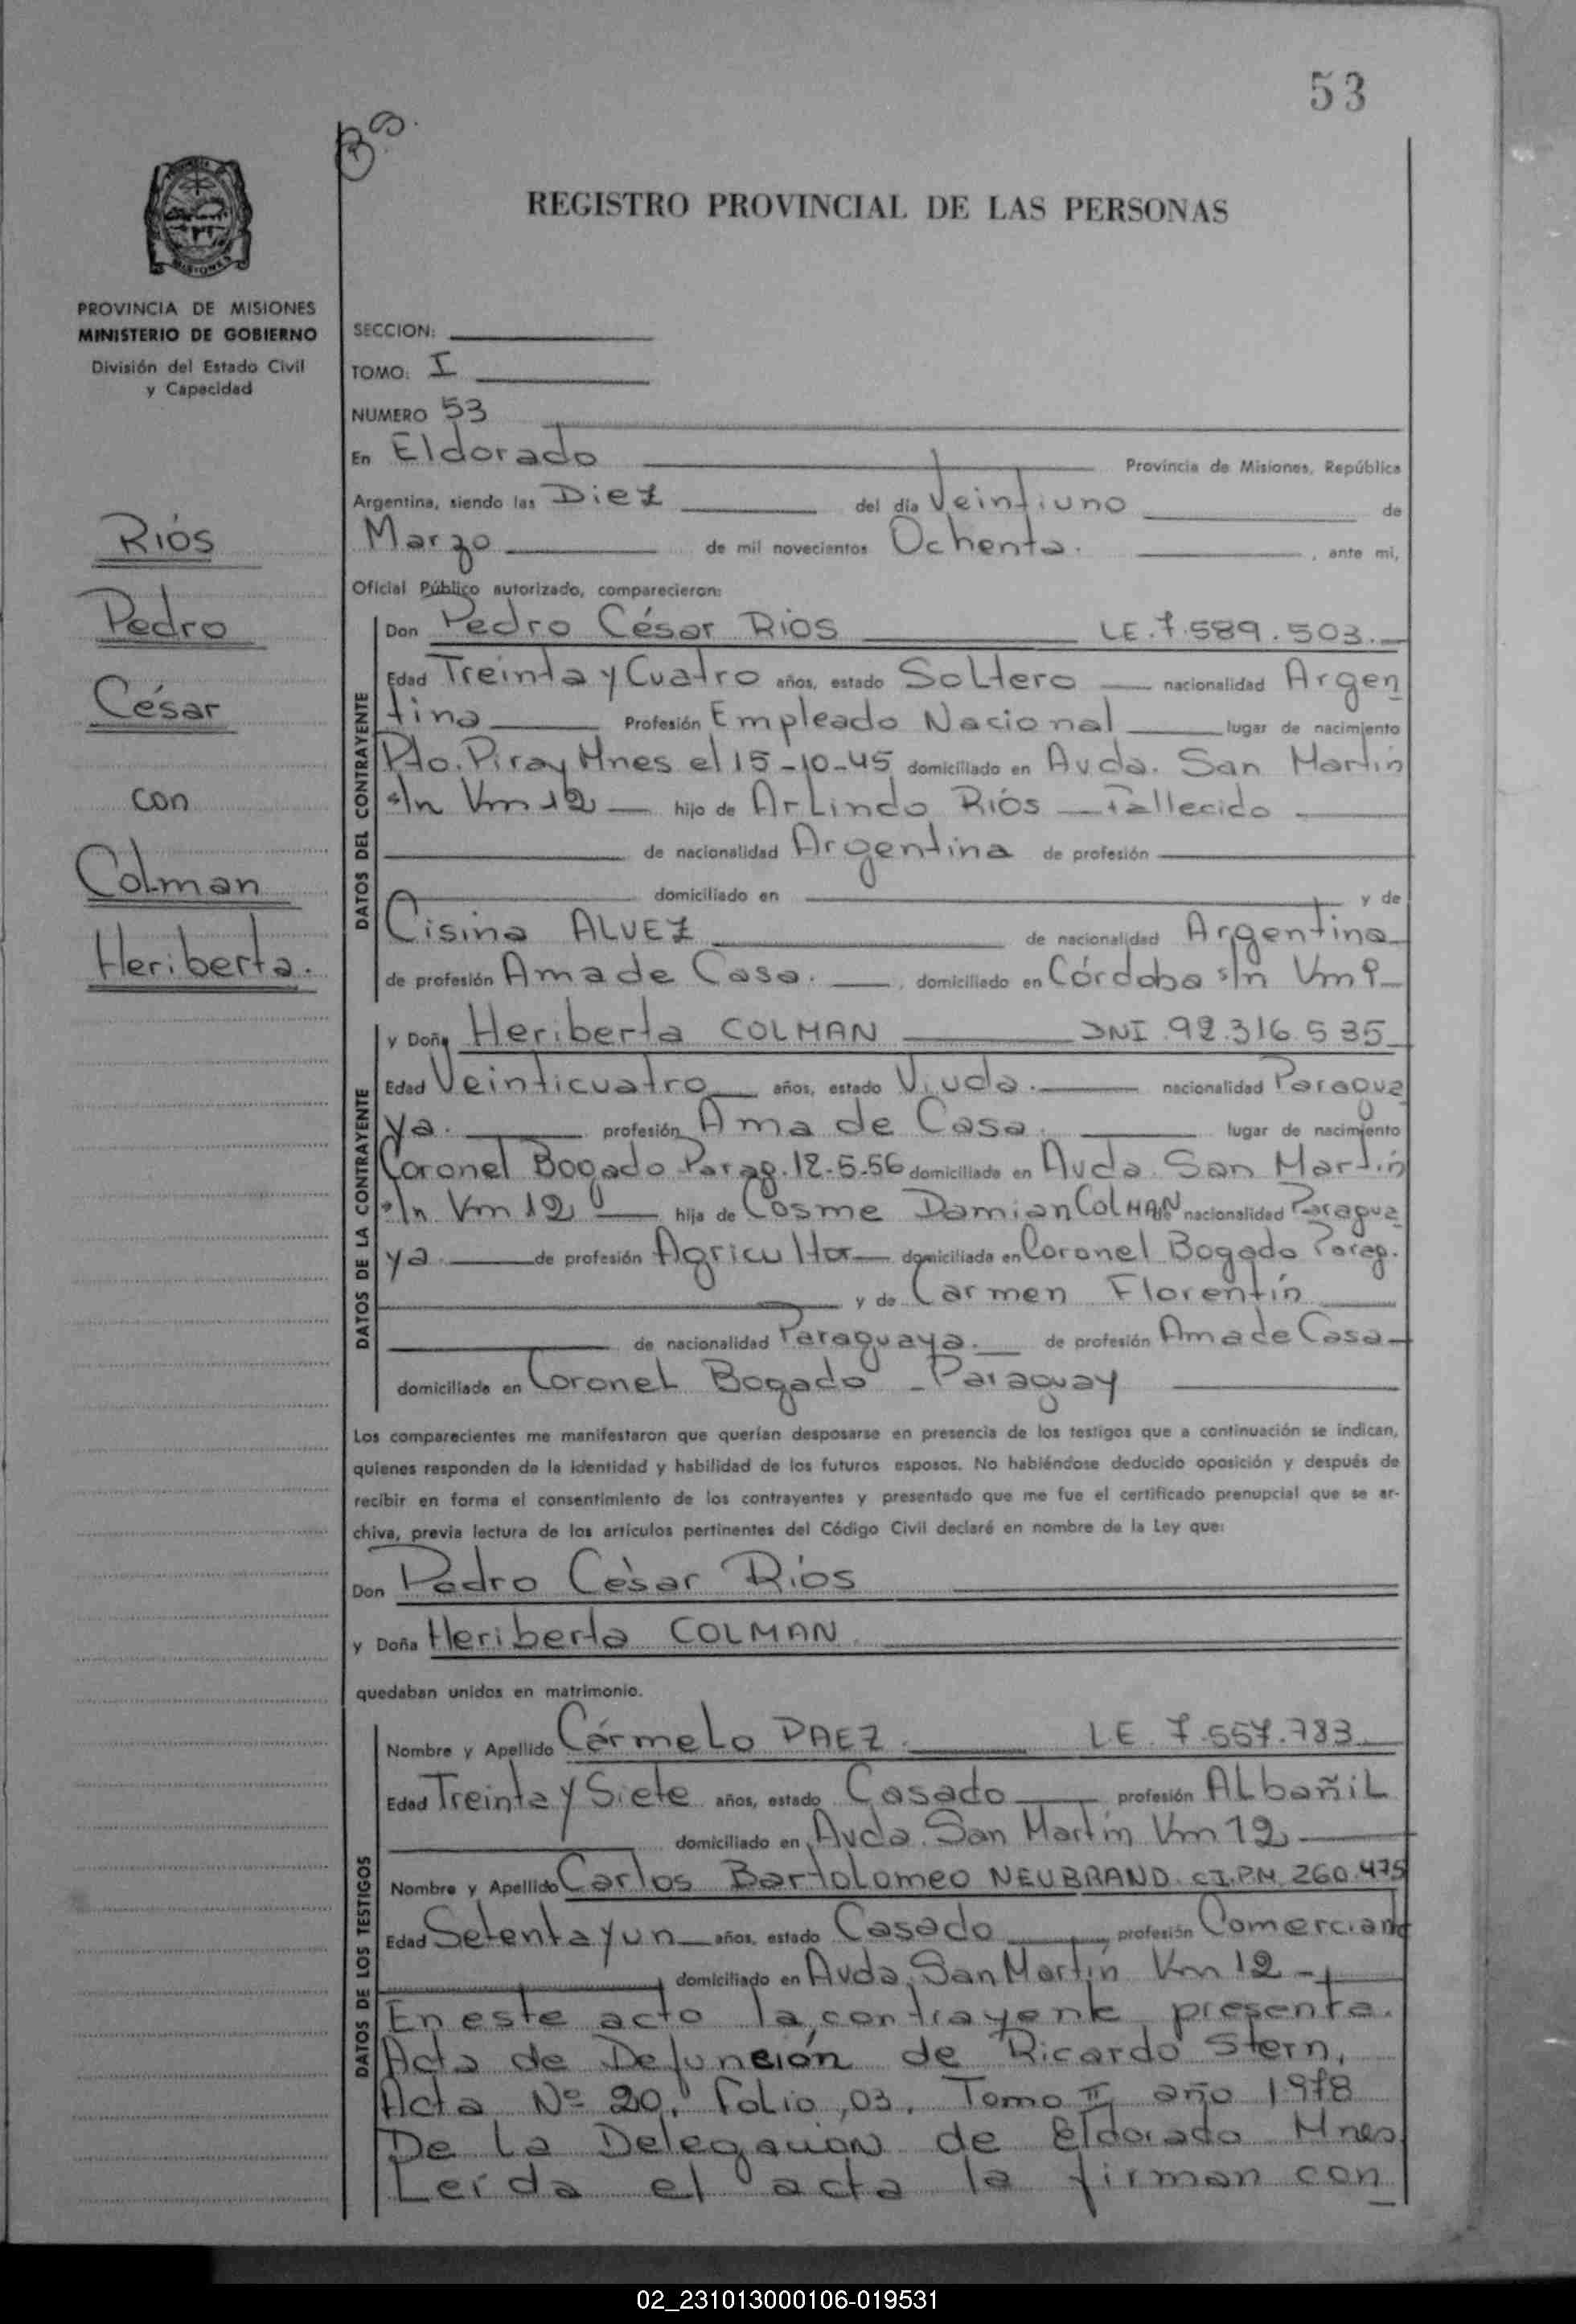 53
B.S.
REGISTRO PROVINCIAL DE LAS PERSONAS
PROVINCIA DE MISIONES
MINISTERIO DE GOBIERNO
División del Estado Civil
y Capacidad
Ríos
Pedro
César
con
Colman
Heriberta.
SECCION:
TOMO: I
NUMERO 53
En Eldorado Provincia de Misiones, República
Argentina, siendo las Diez del día Veintiuno de
Marzo de mil novecientos Ochenta. , ante mi,
Oficial Público autorizado, comparecieron:
DATOS DEL CONTRAYENTE
Don Pedro César RIOS LE. 7.589.503.
Edad Treinta y Cuatro años, estado Soltero nacionalidad Argen
tina Profesión Empleado Nacional lugar de nacimiento
Pto. Piray Mnes el 15-10-45 domiciliado en Avda. San Martín
s/n Km 12 hijo de Arlindo Ríos - Fallecido
de nacionalidad Argentina de profesión
domiciliado en y de
Cisina ALVEZ de nacionalidad Argentina
de profesión Ama de Casa. , domiciliado en Córdoba s/n Km 9
DATOS DE LA CONTRAYENTE
y Doña Heriberta COLMAN DNI. 92.316.535
Edad Veinticuatro años, estado Viuda. nacionalidad Paragua
ya. profesión Ama de Casa. lugar de nacimiento
Coronel Bogado Parag. 12-5-56 domiciliada en Avda. San Martín
s/n Km 12 hija de Cosme Damian COLMAN de nacionalidad Paragua
ya de profesión Agricultor domiciliada en Coronel Bogado Parag.
y de Carmen Florentín
de nacionalidad Paraguaya. de profesión Ama de Casa
domiciliada en Coronel Bogado - Paraguay
Los comparecientes me manifestaron que querían desposarse en presencia de los testigos que a continuación se indican,
quienes responden de la identidad y habilidad de los futuros esposos. No habiéndose deducido oposición y después de
recibir en forma el consentimiento de los contrayentes y presentado que me fue el certificado prenupcial que se ar-
chiva, previa lectura de los artículos pertinentes del Código Civil declaré en nombre de la Ley que:
Don Pedro César Ríos
y Doña Heriberta COLMAN
quedaban unidos en matrimonio.
DATOS DE LOS TESTIGOS
Nombre y Apellido Cármelo PAEZ. LE. 7.557.783
Edad Treinta y Siete años, estado Casado profesión Albañil
domiciliado en Avda. San Martín Km 12
Nombre y Apellido Carlos Bartolomeo NEUBRAND. CI.PM. 260.475
Edad Setenta y un años, estado Casado profesión Comerciante
domiciliado en Avda. San Martín Km 12 -
En este acto la contrayente presenta.
Acta de Defunción de Ricardo Stern,
Acta Nº 20, Folio, 03, Tomo II, año 1978
De La Delegación de Eldorado Mnes.
Leída el acta la firman con
02_231013000106-019531